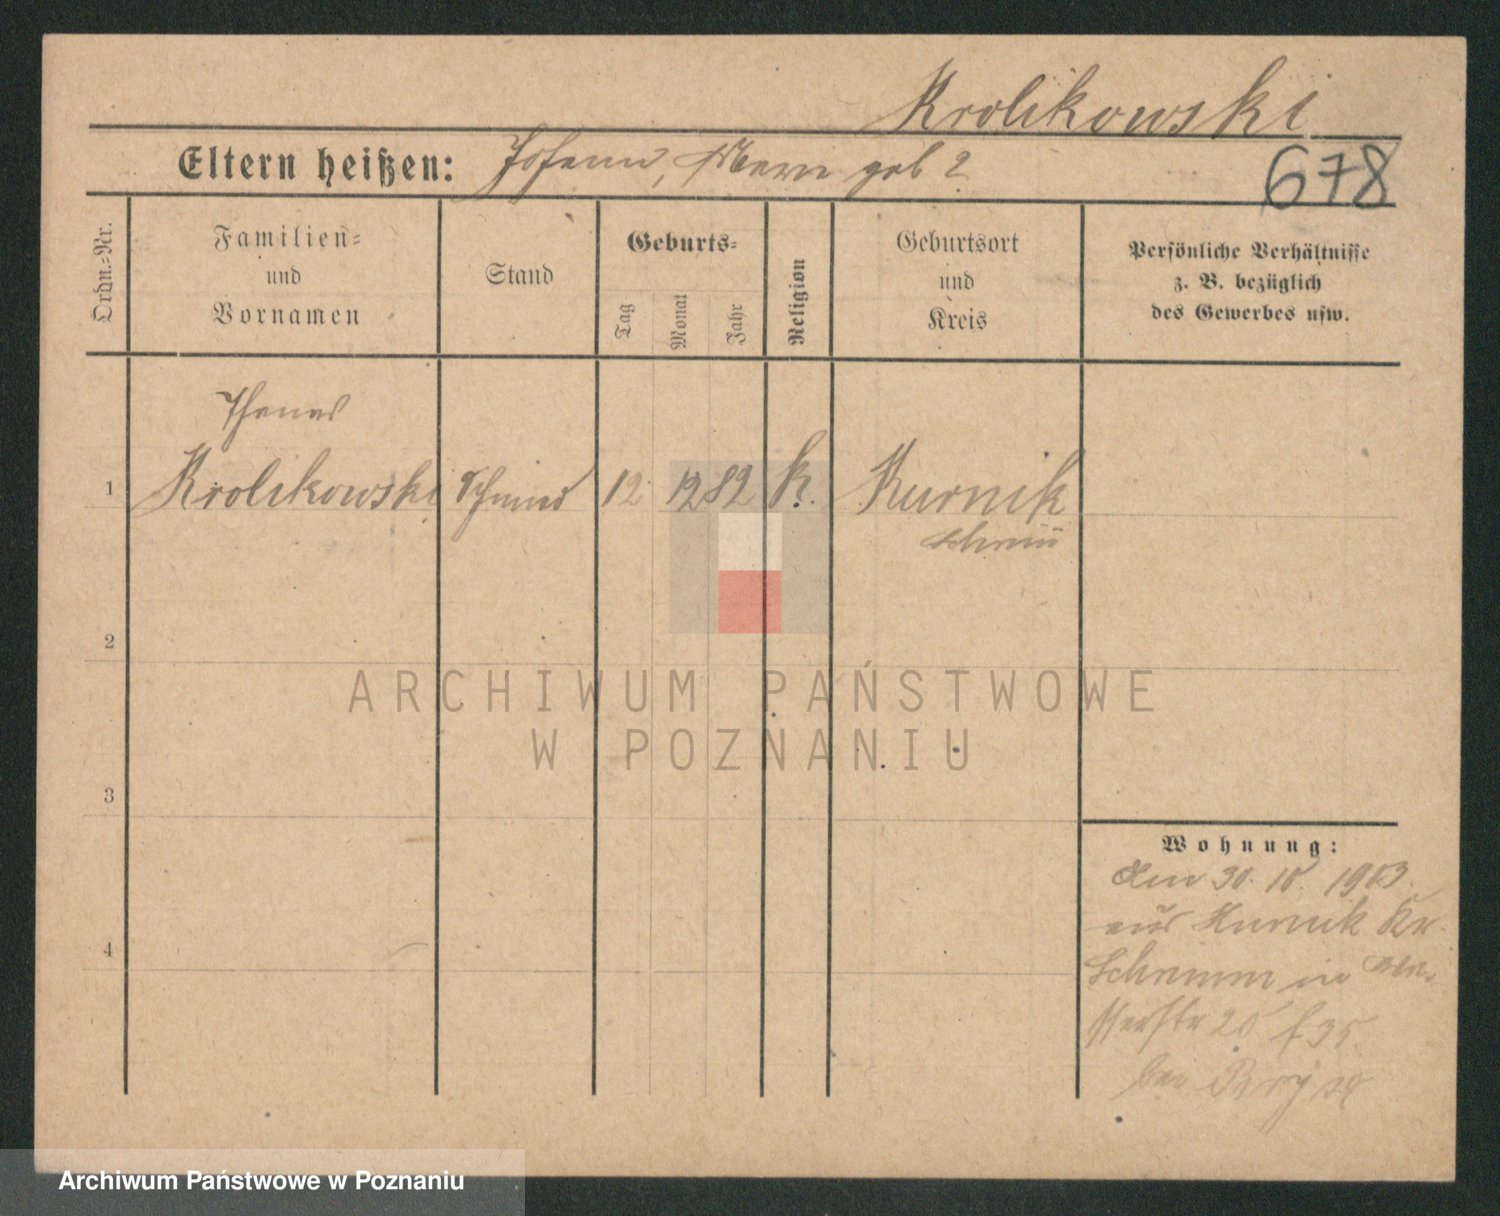 Krolikowski
Eltern heißen: Johann, Marie geb ?
678
Ordn.-Nr.
Familien-
und
Vornamen
Stand
Geburts-
Tag
Monat
Jahr
Religion
Geburtsort
und
Kreis
Persönliche Verhältnisse
z. B. bezüglich
des Gewerbes usw.
Thomas
1 Krolikowski Schmied 12 12 82 k. Kurnik
Schrimm
2
3
4
ARCHIWUM PAŃSTWOWE
W POZNANIU
Wohnung:
Am 30. 10. 1903.
aus Kurnik Kr.
Schrimm in
20 f 35.
bei
Archiwum Państwowe w Poznaniu